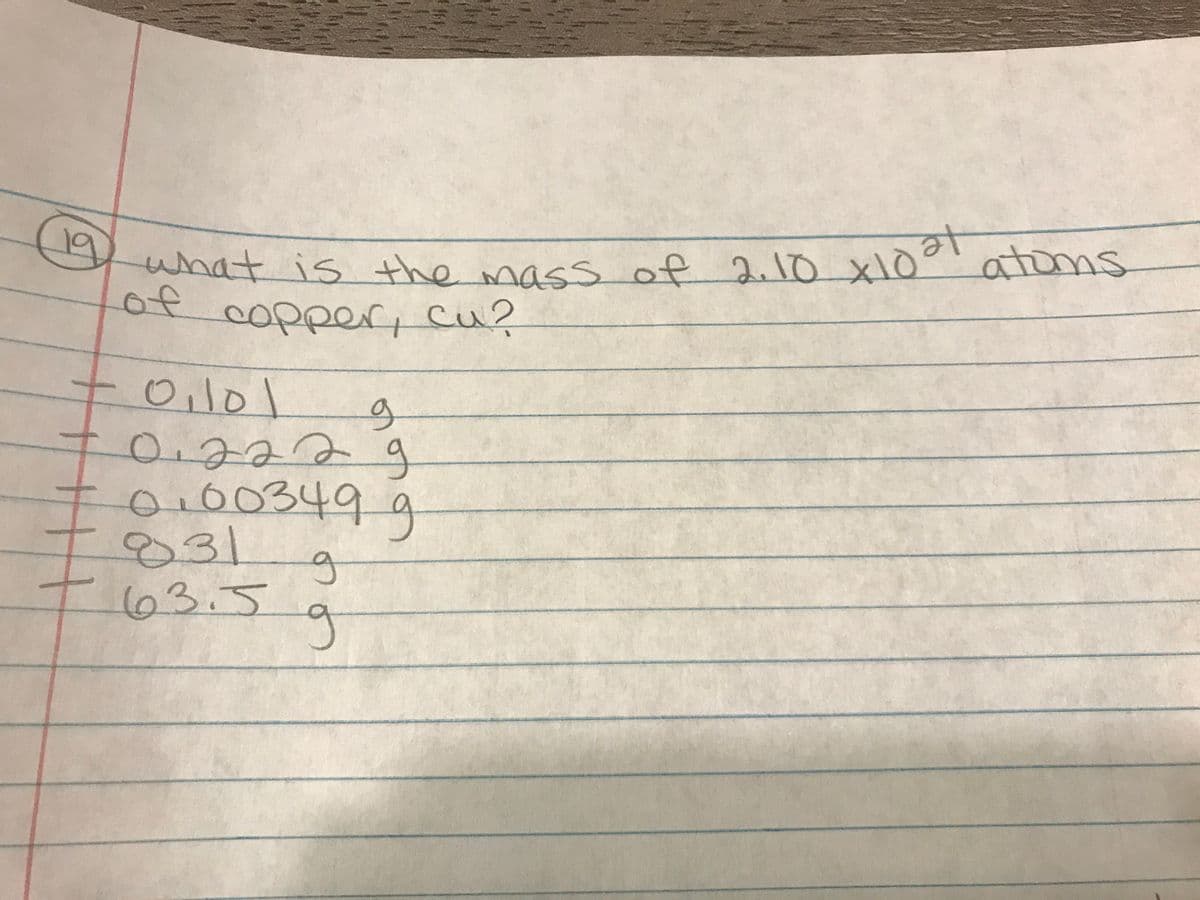 19 what is the mass of 2.10 x10²¹ atoms
of copper, cu?
- 0.101 g
- 0.222 g
- 0.00349 g
- 831 g
- 63.5 g